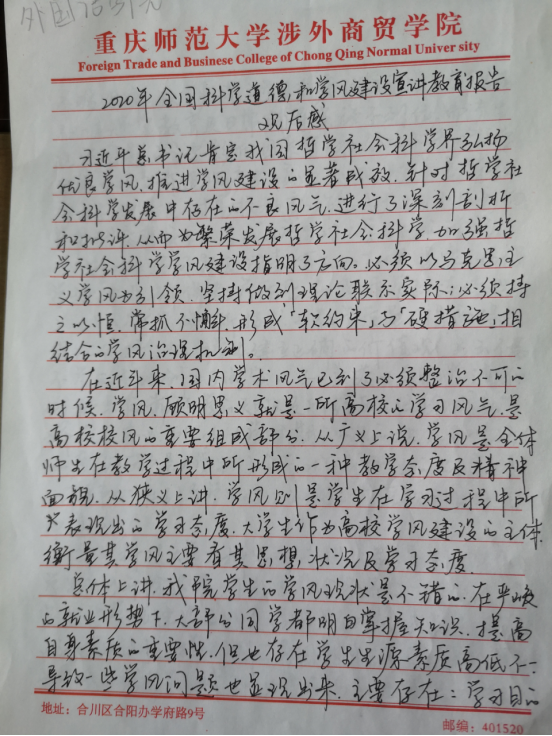 外国语引元
重庆师范大学涉外商贸学院
Foreign Trade and Business College of Chong Qing Normal Univer sity
2020年全国科学道德和学风建设宣讲教育报告
观后感
习近平总书记肯定我国哲学社会科学界弘扬
优良学风、推进学风建设的显著成效,针对哲学社
会科学发展中存在的不良风气,进行了深刻剖析
和批评,从而为繁荣发展哲学社会科学、加强哲
学社会科学学风建设指明了方向。必须以马克思主
义学风为引领,坚持做到理论联系实际;必须持
之以恒,常抓不懈,形成「软约束」与「硬措施」相
结合的学风治理机制。
在近年来,国内学术风气已到了必须整治不可的
时候。学风,顾明思义就是一所高校的学习风气,是
高校校风的重要组成部分。从广义上说,学风是全体
师生在教学过程中所形成的一种教学态度及精神
面貌。从狭义上讲,学风则是学生在学习过程中所
表现出的学习态度。大学生作为高校学风建设的主体,
衡量其学风主要看其思想,状况及学习态度.
总体上讲,我院学生的学风现状是不错的,在严峻
的就业形势下,大部分同学都明白掌握知识、提高
自身素质的重要性,但也存在学生生源素质高低不一
导致一些学风问题也显现出来,主要存在:学习目的
地址:合川区合阳办学府路9号
邮编:401520